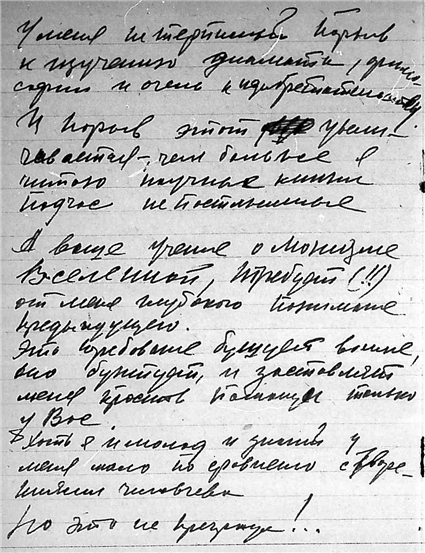 У меня нетерпимый порыв
к изучению диамата, фило-
софии и очень к изобретательству
И порыв этот увели-
чивается – чем больше я
читаю научные книги
подчас непостижимые
А ваше учение о Монизме
Вселенной, требует (!!)
от меня глубокого понимания
предыдущего.
Это требование бушует во мне,
оно бунтует, и заставляет
меня просить помощи только
у Вас
Хоть я и молод и знаний у
меня мало по сравнению с
человека
Но это не преграда!...